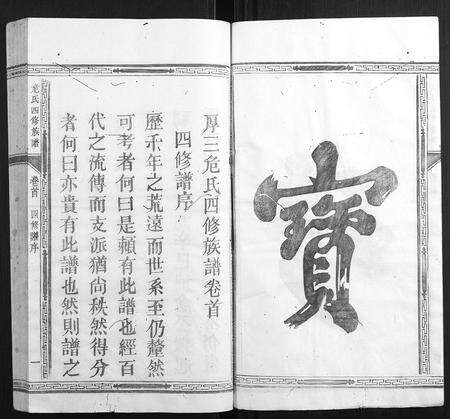 寶
厚三危氏四修族譜卷首
四修譜序
歷年之荒遠而世系至仍釐然
可考者何曰是賴有此譜也經百
代之流傳而支派猶尚秩然得分
者何曰亦貴有此譜也然則譜之
危氏四修族譜
卷首
四修譜序
一